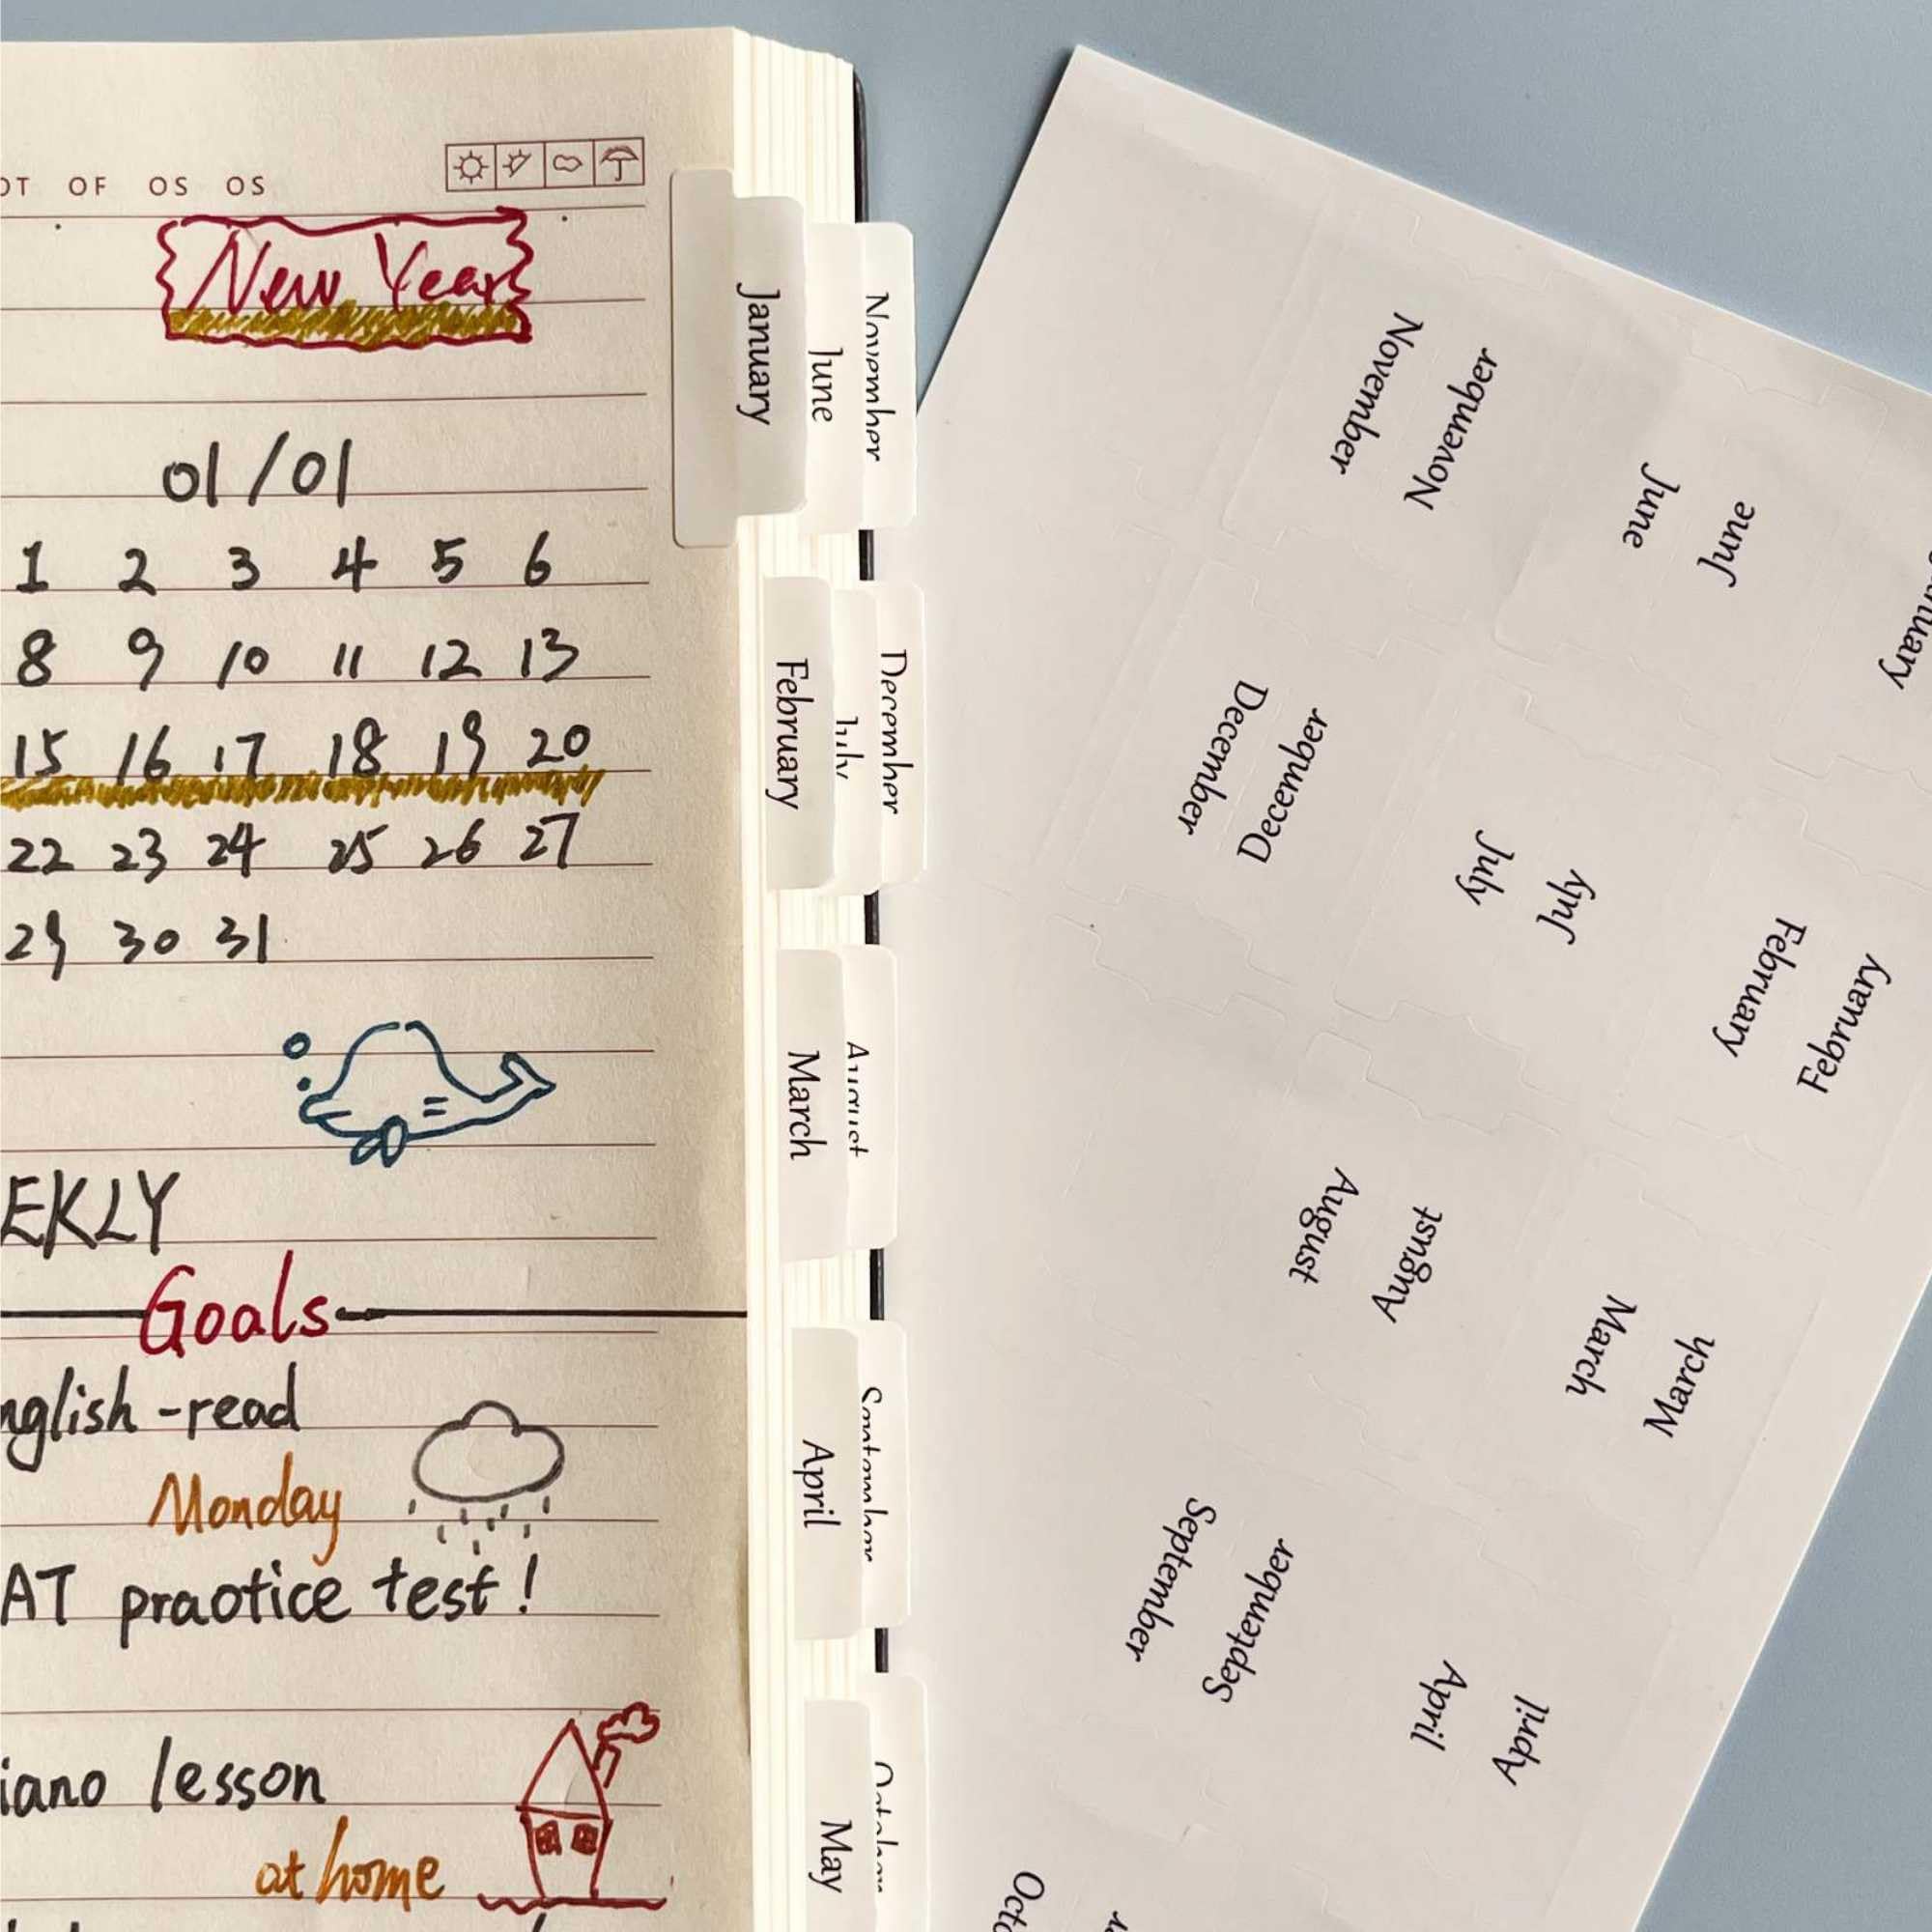 OF OS OS
New Year
01/01
1 2 3 4 5 6
8 9 10 11 12 13
15 16 17 18 19 20
22 23 24 25 26 27
29 30 31
EKLY
Goals
nglish-read
Monday
AT practice test!
iano lesson
at home
January
June
November
February
July
December
March
August
April
September
May
October
November
November
June
June
December
December
July
July
February
February
August
August
March
March
September
September
April
April